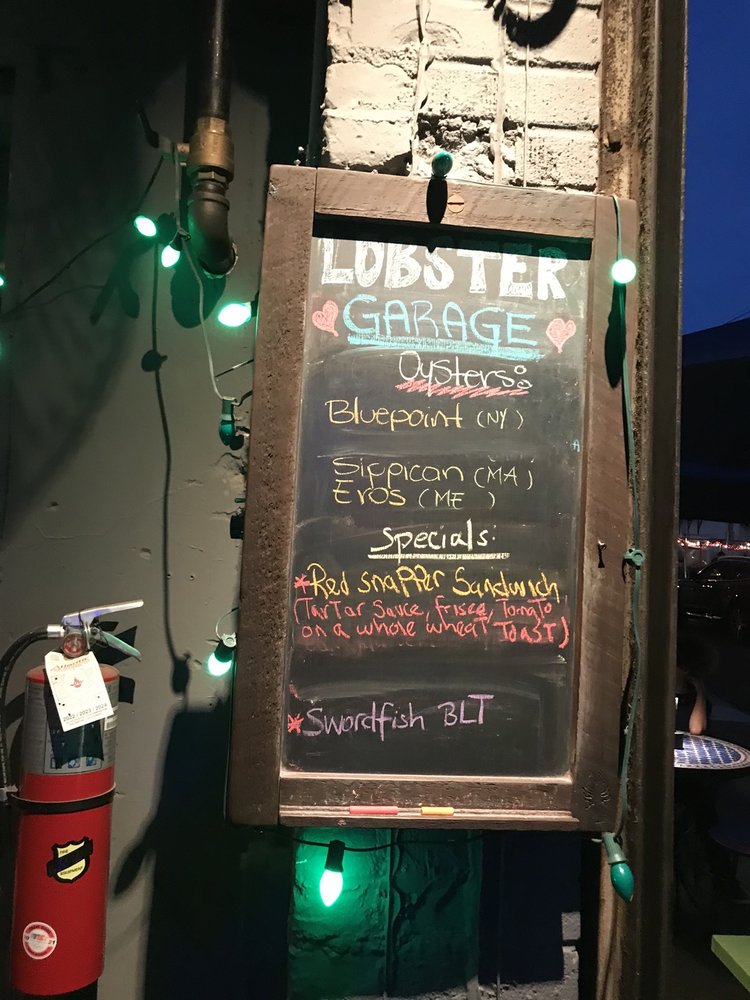 LOBSTER
GARAGE
Oysters:
Bluepoint (NY)
Sippican (MA)
Eros (ME)
Specials:
*Red Snapper Sandwich
(Tartar Sauce, Frisee, Tomato
on a whole wheat Toast)
*Swordfish BLT